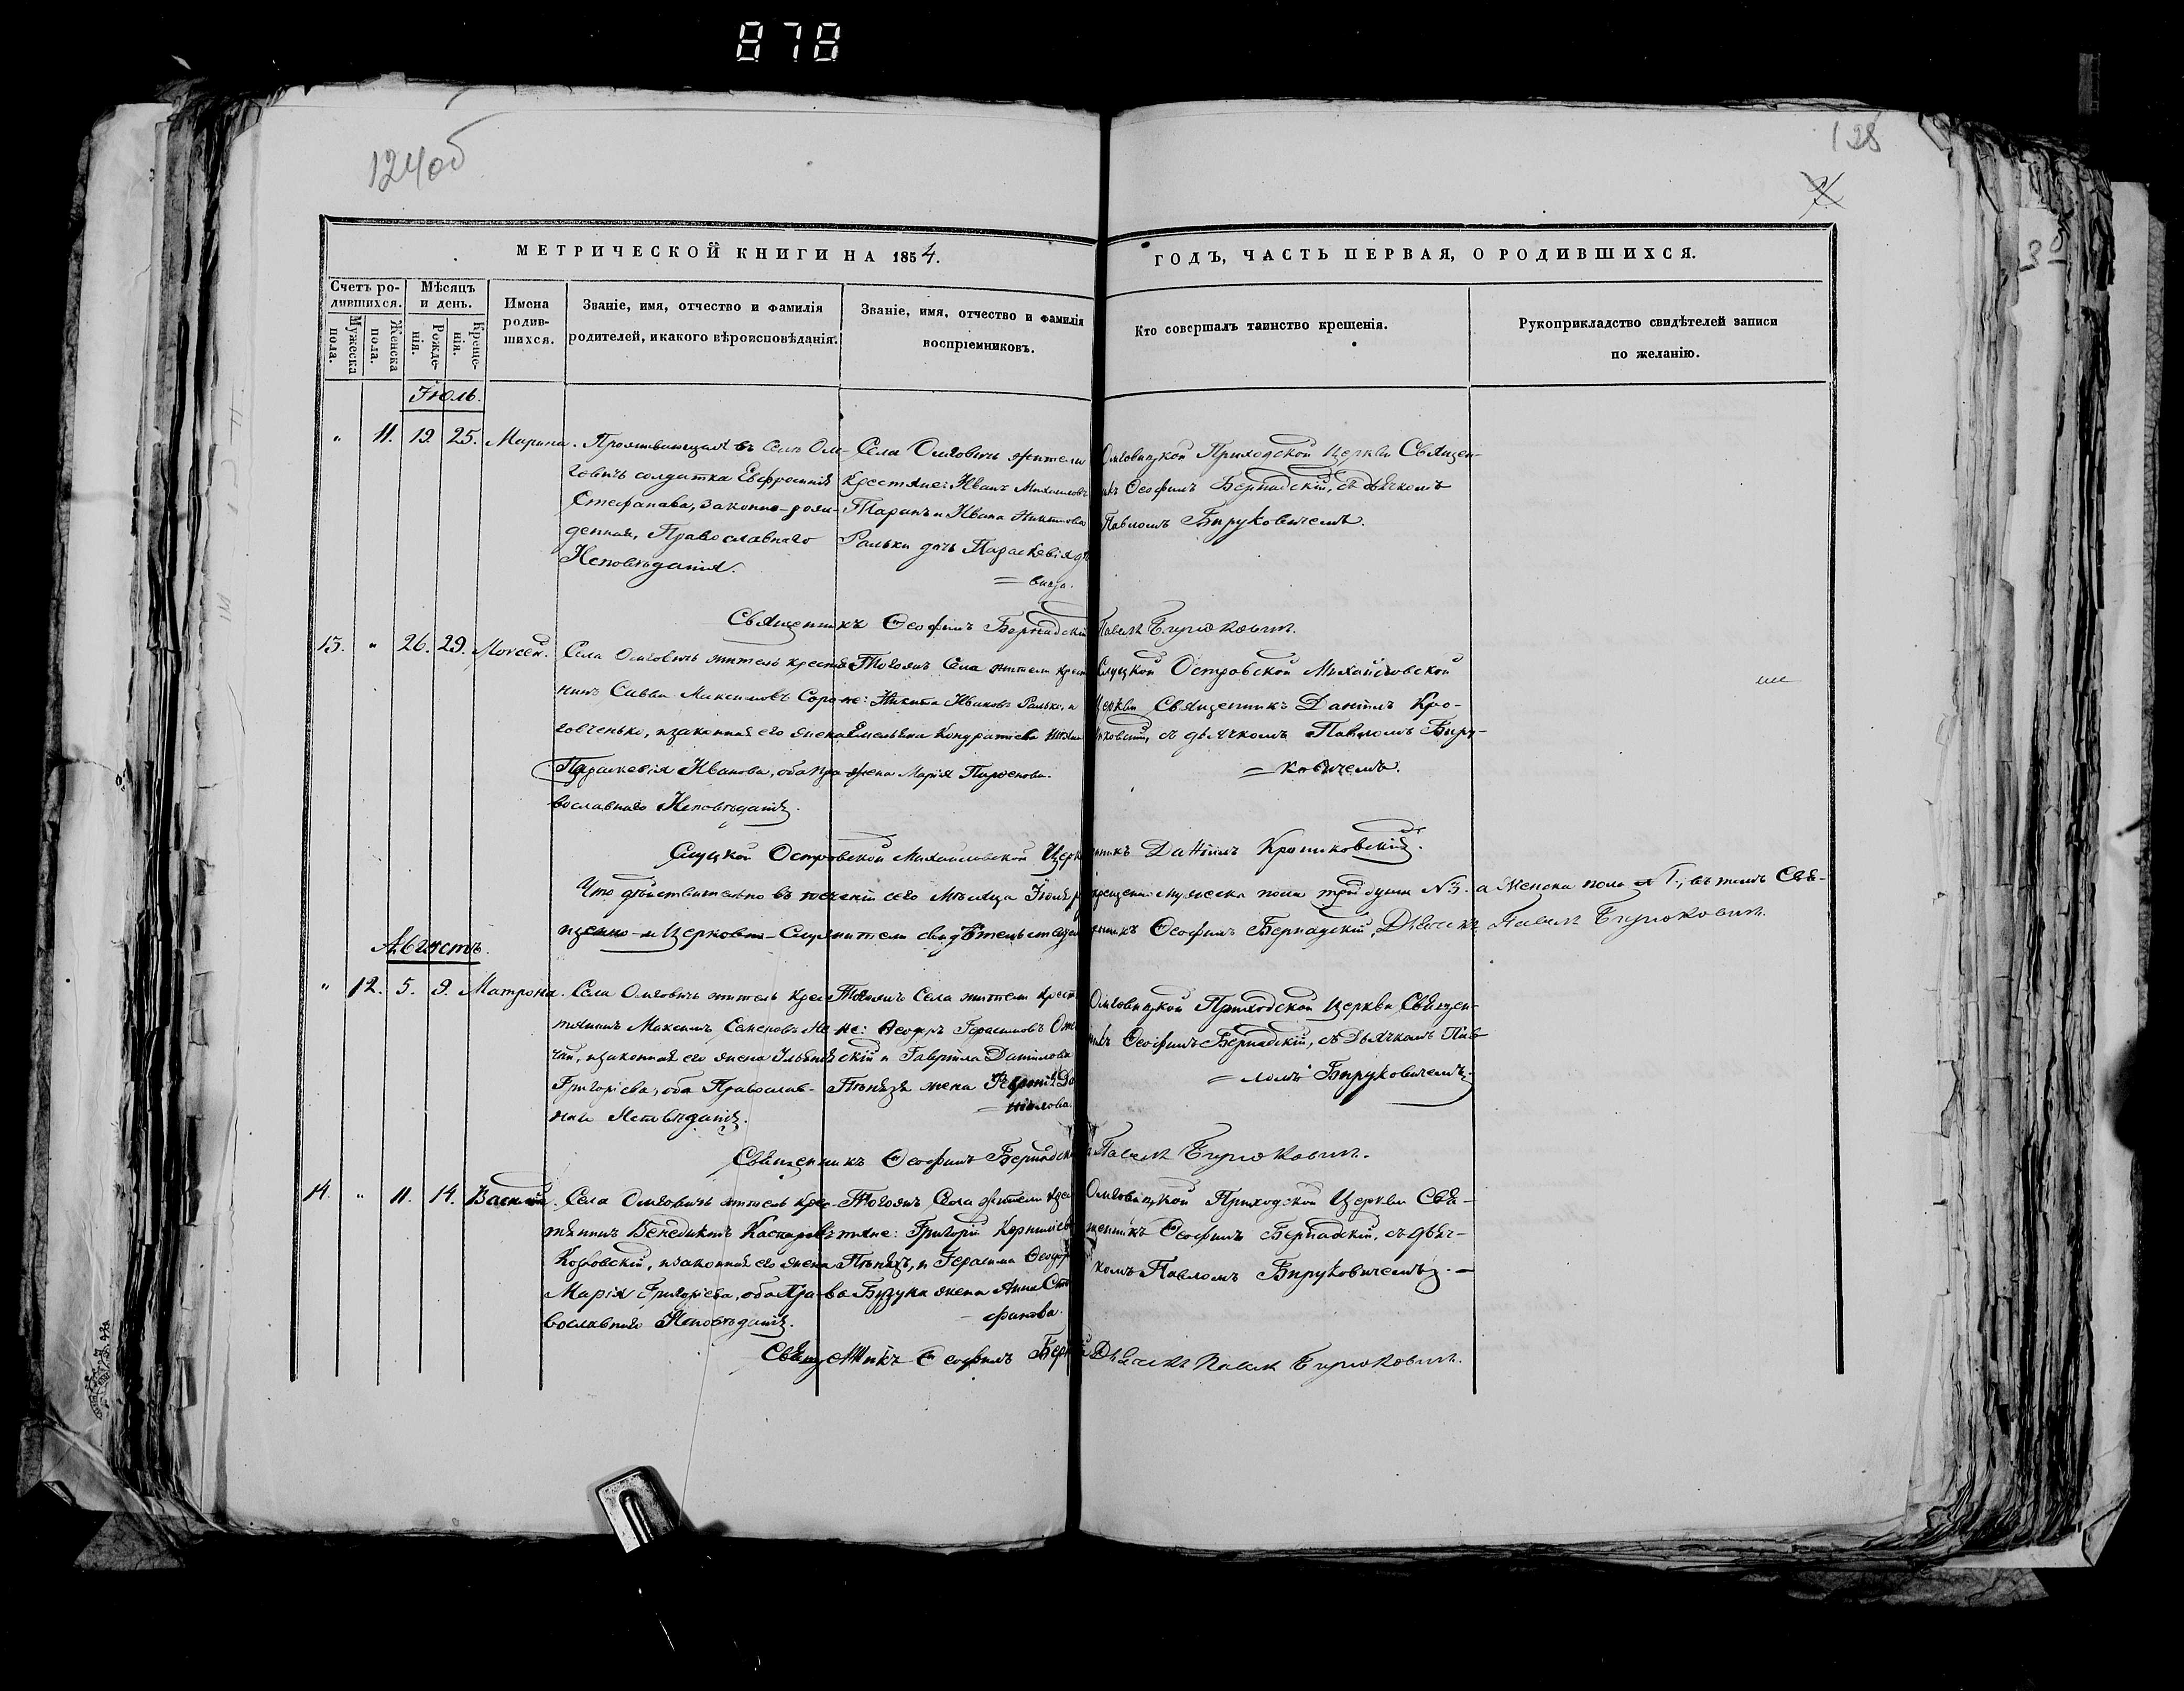 878
124об
125
МЕТРИЧЕСКОЙ КНИГИ НА 1854.
ГОДЪ, ЧАСТЬ ПЕРВАЯ, О РОДИВШИХСЯ.
Счетъ ро-
дившихся.
Мужеска
пола.
Женска
пола.
Мѣсяцъ
и день.
Рожде-
нія.
Креще-
нія.
Имена
родив-
шихся.
Званіе, имя, отчество и фамилія
родителей, и какого вѣроисповѣданія.
Званіе, имя, отчество и фамилія
воспріемниковъ.
Кто совершалъ таинство крещенія.
Рукоприкладство свидѣтелей записи
по желанію.
Іюль.
" 11. 19. 25. Марина.
Проживающая въ селѣ Ом-
говичъ солдатка Евфросинія
Стефанова, законно-рож-
денная, Православнаго
Исповѣданія.
Села Омговичъ жители
крестяне: Иванъ Михаиловъ
и Ивана Никитова
Ралька дочь Параскевія дѣ-
= вица.
Омговицкой Приходской Церкви Священ-
никъ Ѳеофилъ Бернадскій, съ дьячкомъ
Павломъ Бируковичемъ.
Священникъ Ѳеофилъ Бернадскій Павелъ Бирюковичъ.
13. " 26. 29. Моисей.
Села Омговичъ житель крестя-
нинъ Савва Максимовъ Соро-
говченько, и законная его жена
Параскевія Иванова, оба Пра-
вославнаго Исповѣданія.
Тогожъ Села жители крестя-
не: Никита Ивановъ Ралько, и
Емельяна Кондратіева
жена Марія Парфенова.
Слуцкой Островской Михайловской
Церкви Священникъ Даніилъ
съ дьячкомъ Павломъ Биру-
= ковичемъ.
Слуцкой Островской Михайловской Церкви
Что дѣйствительно въ теченіи сего Мѣсяца Іюля
крещено мужеска пола три души №3. а Женска пола №1, въ томъ Свя-
щенно-и Церковно-Служители свидѣтельствуемъ
Ѳеофилъ Бернадскій, Дьячекъ Павелъ Бирюковичъ.
Августъ.
" 12. 5. 9. Матрона.
Села Омговичъ житель крес-
тянинъ Максимъ Семеновъ
и законная его жена Ульянія
Григоріева, оба Православ-
наго Исповѣданія.
Тогожъ Села жители крестя-
не: Ѳеодоръ Герасимовъ
и Гавріила Даніилова
жена Февронія Да-
= ніилова.
Омговицкой Приходской Церкви Священ-
никъ Ѳеофилъ Бернадскій, съ Дьячкомъ Пав-
= ломъ Бируковичемъ.
Священникъ Ѳеофилъ Бернадскій Павелъ Бирюковичъ.
14. " 11. 14. Василій.
Села Омговичъ житель крес-
тянинъ Венедиктъ Каспаровъ
Козловскій, и законная его жена
Марія Григоріева, оба Пра-
вославнаго Исповѣданія.
Тогожъ Села жители крес-
тяне: Григорій Корниліевъ
и Герасима Ѳеодоро-
ва Бузука жена Анна Сте-
фанова.
Омговицкой Приходской Церкви Свя-
щенникъ Ѳеофилъ Бернадскій, съ дьяч-
комъ Павломъ Бируковичемъ. —
Священникъ Ѳеофилъ
Дьячекъ Павелъ Бирюковичъ.